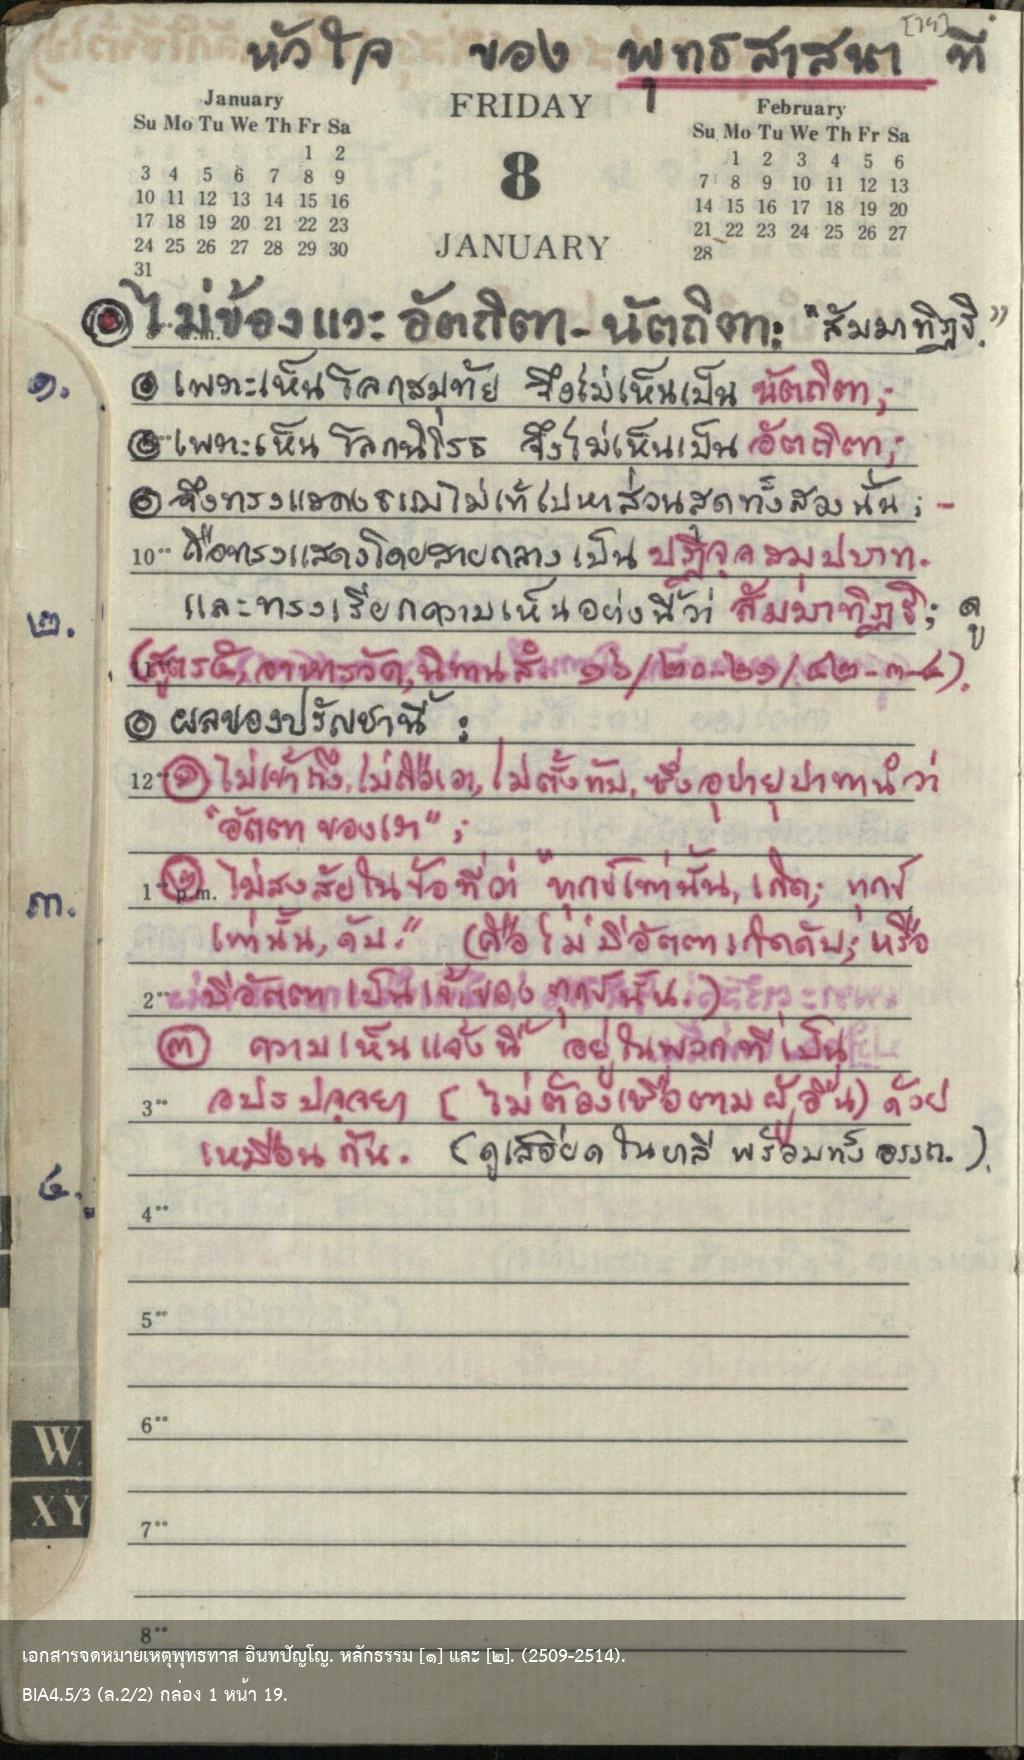 [19]
หัวใจ ของ พุทธสาสนา ที่
January
Su Mo Tu We Th Fr Sa
1 2
3 4 5 6 7 8 9
10 11 12 13 14 15 16
17 18 19 20 21 22 23
24 25 26 27 28 29 30
31
FRIDAY
8
JANUARY
February
Su Mo Tu We Th Fr Sa
1 2 3 4 5 6
7 8 9 10 11 12 13
14 15 16 17 18 19 20
21 22 23 24 25 26 27
28
ไม่ข้องแวะ อัตถิตา - นัตถิตา: "สัมมาทิฏฐิ."
๑.
เพราะเห็นโลกสมุทัย จึงไม่เห็นเป็น นัตถิตา;
เพราะเห็น โลกนิโรธ จึงไม่เห็นเป็น อัตถิตา;
จึงทรงแสดงธรรมไม่เข้าไปหาส่วนสุดทั้งสองนั้น; -
10⁰⁰ คือทรงแสดงโดยสายกลาง เป็น ปฏิจฺจสมุปบาท.
๒.
และทรงเรียกความเห็นอย่างนี้ว่า สัมมาทิฏฐิ; ดู
11⁰⁰ (สูตร๕, อาหารวัค, นิทานสํ. ๑๖/๒๐-๒๑/๔๒-๓-๔).
ผลของปรัญชานี้ :
12⁰⁰ ๑ ไม่เข้าถึง, ไม่ถือเอา, ไม่ตั้งทับ, ซึ่งอุปายุปาทานํ ว่า
"อัตตา ของเรา" ;
๓.
1⁰⁰ p.m. ๒ ไม่สงสัยในข้อที่ว่า "ทุกข์เท่านั้น, เกิด; ทุกข์
เท่านั้น, ดับ." (คือไม่มีอัตตาเกิดดับ; หรือ
2⁰⁰ มีอัตตาเป็นเจ้าของทุกข์นั้น.)
๓ ความเห็นแจ้งนี้ อยู่ในพวกที่เป็น
3⁰⁰ อปรปจฺจยา (ไม่ต้องเชื่อตามผู้อื่น) ด้วย
เหมือนกัน. (ดูละเอียดในบาลี พร้อมทั้ง อรรถ.).
๔.
4⁰⁰
5⁰⁰
6⁰⁰
W
XY
7⁰⁰
8⁰⁰
เอกสารจดหมายเหตุพุทธทาส อินทปัญโญ. หลักธรรม [๑] และ [๒]. (2509-2514).
BIA4.5/3 (ล.2/2) กล่อง 1 หน้า 19.